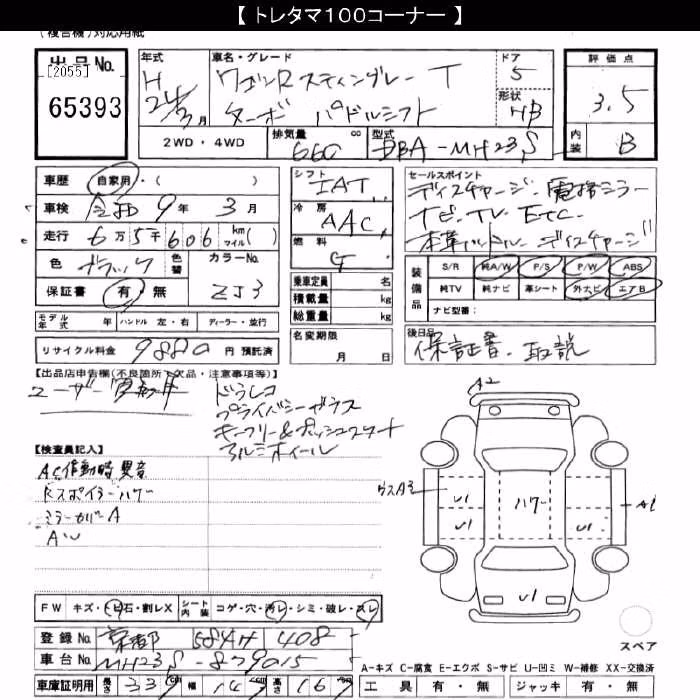 【 トレタマ１００コーナー 】
(複合機) 対応用紙
出品No.
[2055]
65393
年式
H 21/3月
車名・グレード
ワゴンR スティングレー T
ターボ パドルシフト
ドア
5
形状
HB
評価点
3.5
内装
B
2WD・4WD
排気量 cc
660
型式
DBA-MH23S
車歴 自家用・( )
車検 令和 9年 3月
走行 6万5千606 km マイル( )
色 ブラック 色替 カラーNo. ZJ3
保証書 有 無
モデル年式 年 ハンドル 左・右 ディーラー・並行
リサイクル料金 9880 円 預託済
シフト
IAT
冷房
AAC
燃料
G
乗車定員 名
積載量 kg
総重量 kg
名変期限
月 日
セールスポイント
ディスチャージ・電格ミラー
ナビ・TV ETC
本革ハンドル ディスチャージ
装備品
S/R 純A/W P/S P/W ABS
純TV 純ナビ 革シート 外ナビ エアB
ナビ型番:
後日品
保証書・取説
【出品店申告欄(不良箇所・欠品・注意事項等)】
ユーザー買取車
ドラレコ
プライバシーガラス
キーフリー&プッシュスタート
アルミホイール
【検査員記入】
AC作動時異音
Fスポイラーハゲー
ミラーカバーA
AW
A2
ガスA3
U1
U1
ハゲー
U1
A1
U1
スペア
FW キズ・トビ石・割レX シート内装 コゲ・穴・汚レ・シミ・破レ・スレ
登録No. 京都 584H 408
車台No. MH23S-879015
車庫証明用 長さ 339 cm 幅 147 cm 高さ 16
A-キズ C-腐食 E-エクボ S-サビ U-凹ミ W-補修 XX-交換済
工具 有・無 ジャッキ 有・無